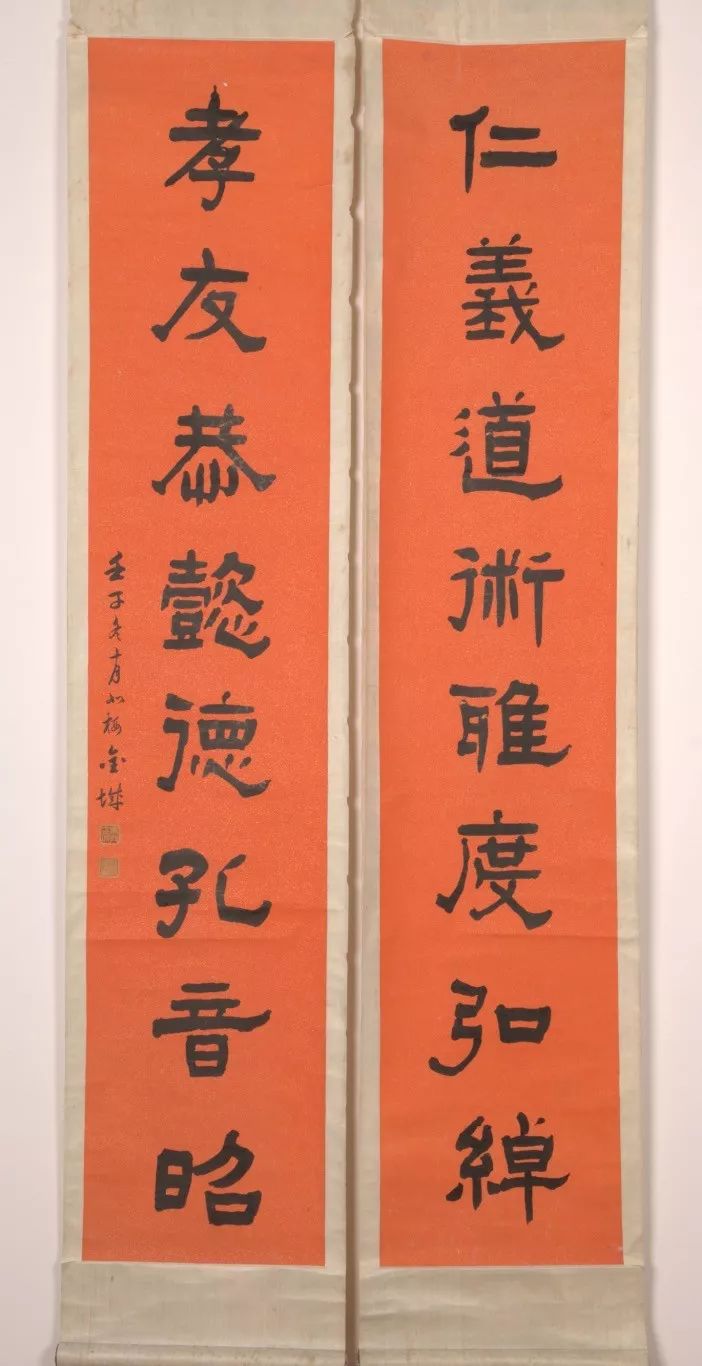 仁義道術雅度弘綽
孝友恭懿德孔音昭
壬子冬十月北樓金城